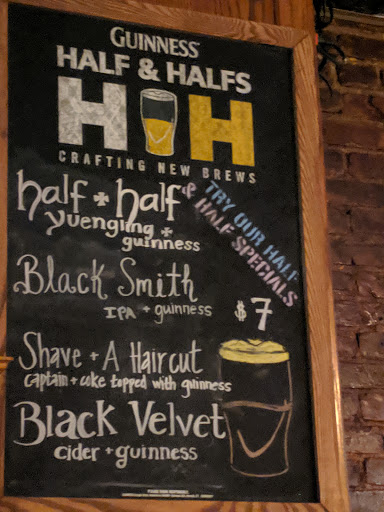 GUINNESS
HALF & HALFS
H H
CRAFTING NEW BREWS
half + half
yuengling +
guinness
TRY OUR HALF
& HALF SPECIALS
Black Smith
IPA + guinness
$7
Shave + A Haircut
captain + coke topped with guinness
Black Velvet
cider + guinness